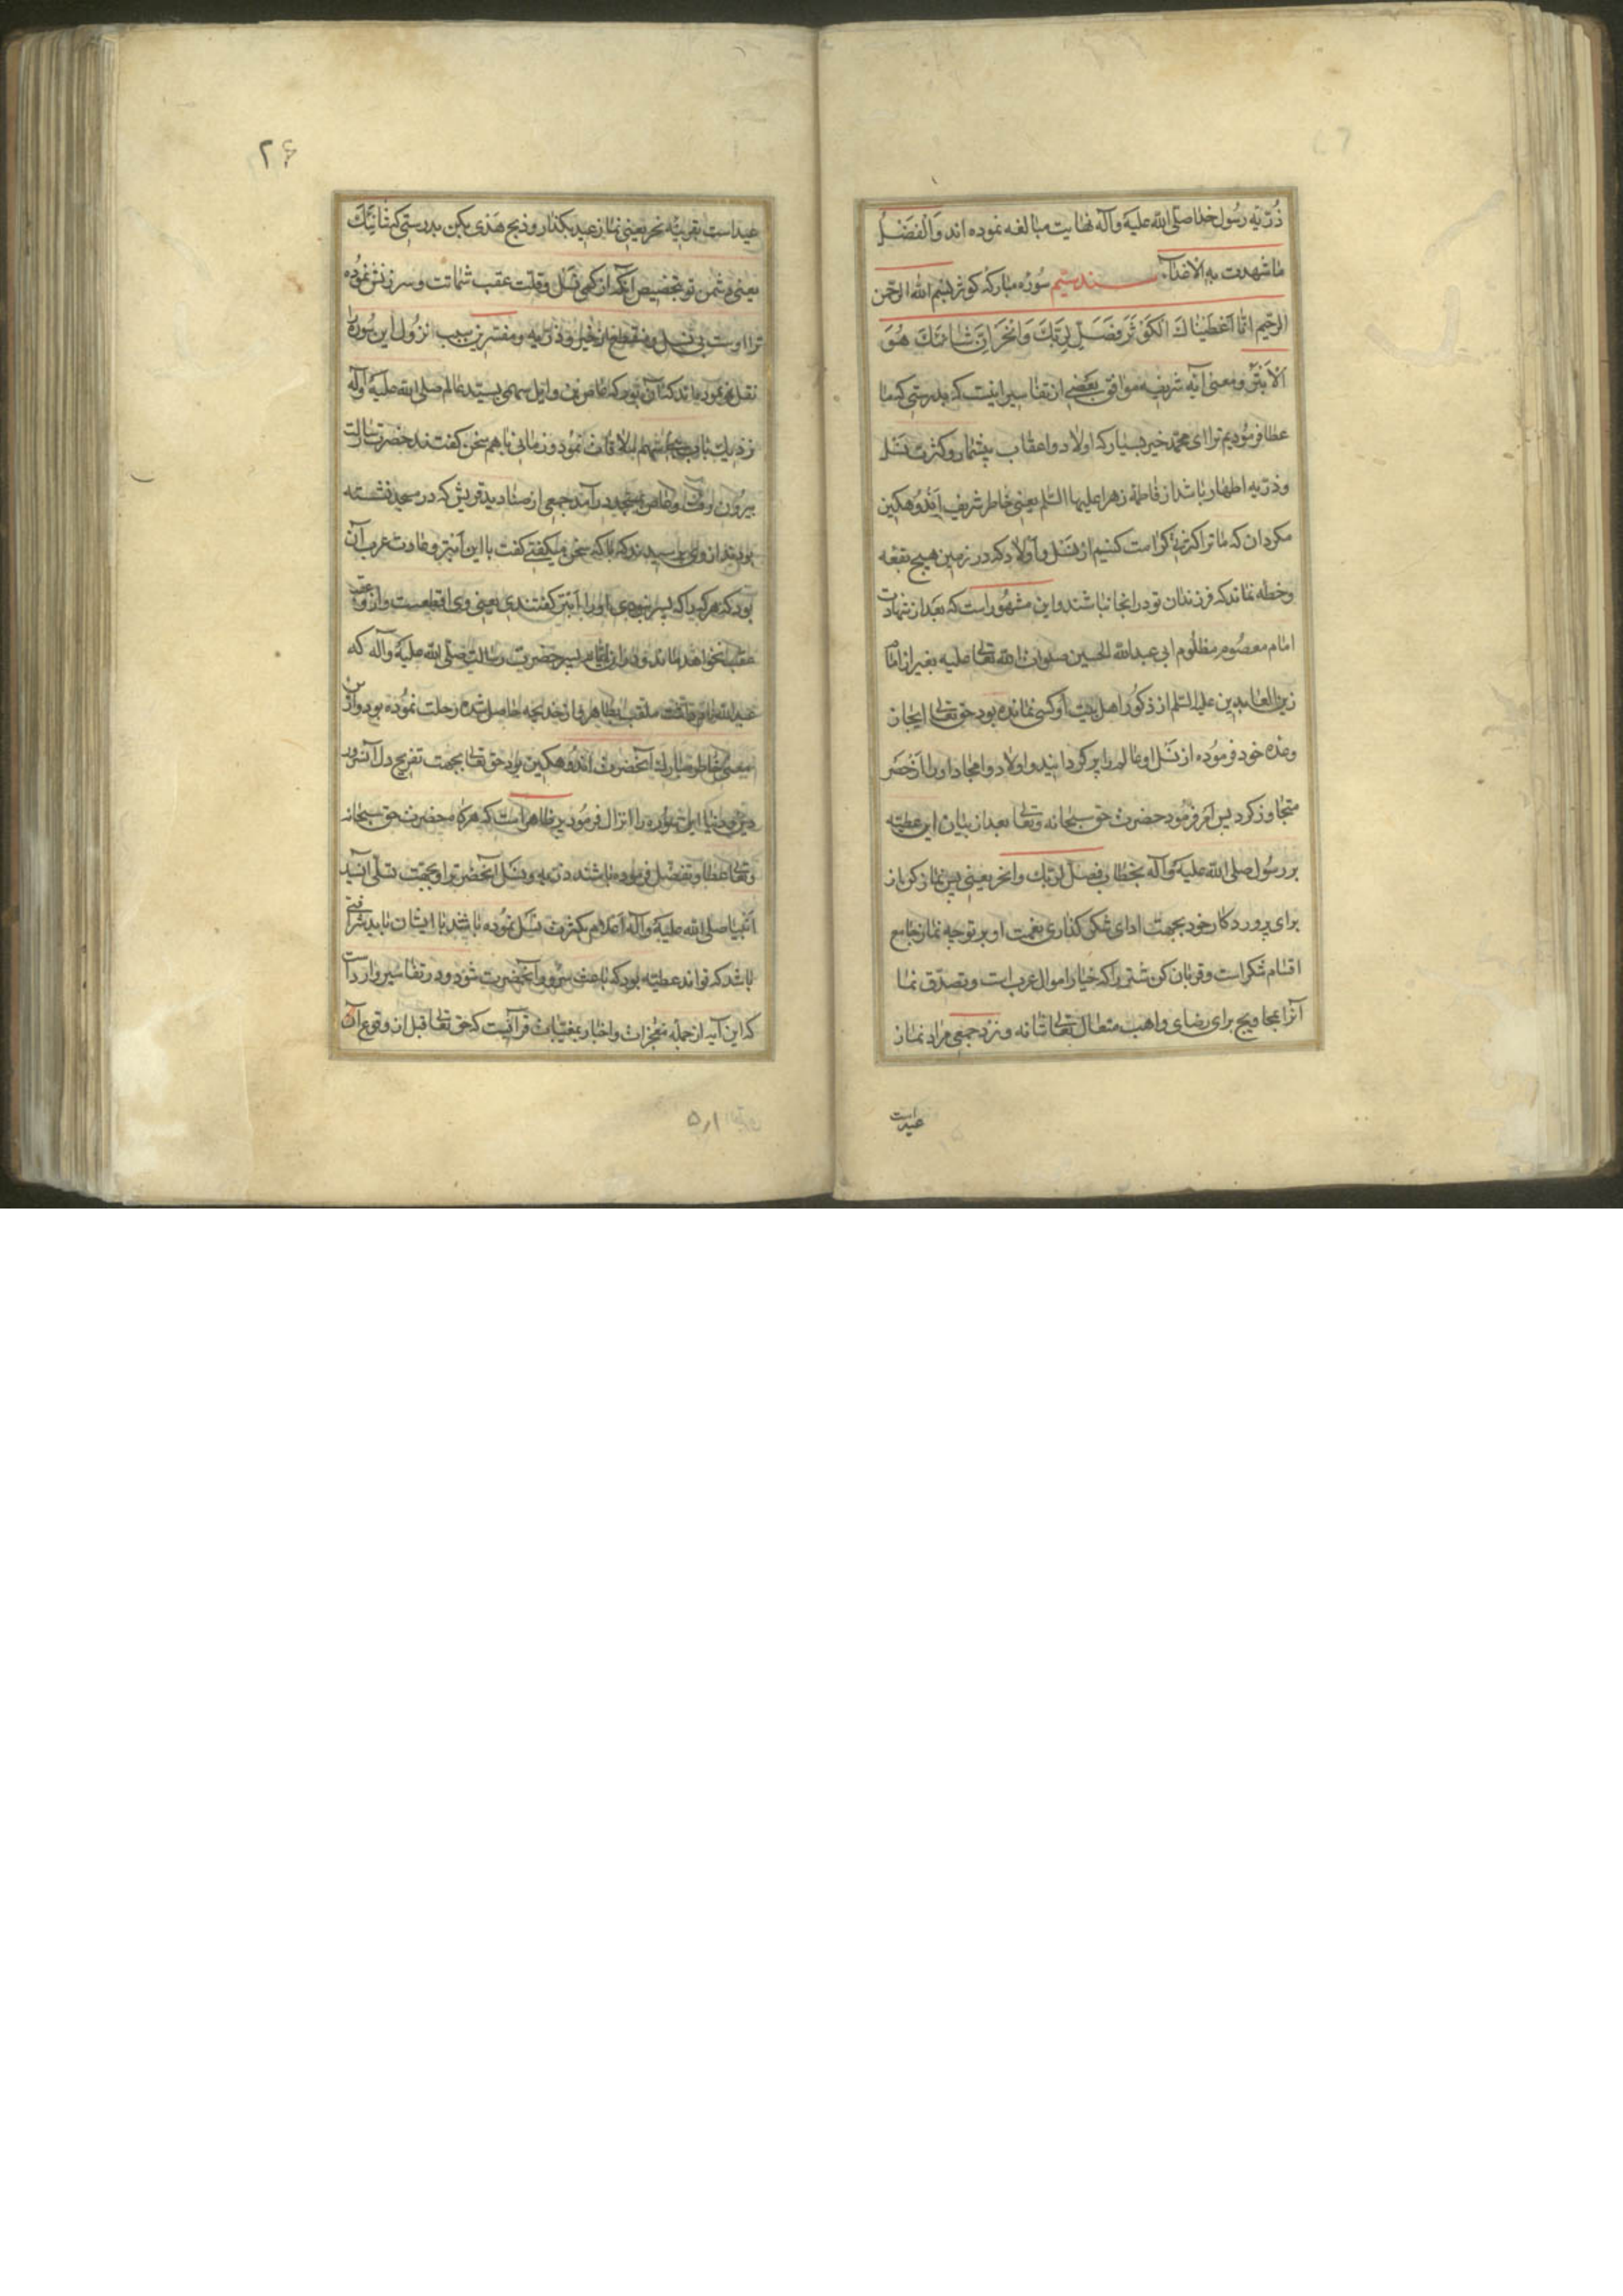 ذُرّیّه رسُول خدا صلّی الله علیه و آله نهایت مبالغه نموده اند وَالْفَضْلُ
ما شهدت به الاعداء سند ششم سُورُه مبارکه کوثر بسم الله الرّحمن
الرّحیم انّا اَعْطَیْناکَ الْکَوْثَرَ فَصَلِّ لِرَبِّکَ وَانْحَرْ اِنَّ شانِئَکَ هُوَ
اَلْاَبْتَرُ و معنی آیه شریفه موافق بعضی از تفاسیر اینست که بدرستی که ما
عطا فرمُودیم ترا ای محمّد خیر بسیار که اولاد و اعقاب بیشمار و کثرت نسل
و ذرّیه اطهار باشد از فاطمهٔ زهرا علیها السّلم یعنی خاطر شریف اَنْدُوهکین
مکردان که ما ترا کرامت کنیم از نسل و اولاد که در زمین هیچ بقعه
و خطه نماند که فرزندان تو در انجا نباشند و این مشهُور است که بعد از شهادت
امام معصُوم مظلُوم ابی عبدالله الحسین صلوات الله تعالی علیه بغیر از امام
زین العابدین علیه السّلم از ذکُور اهل بیت او کسی نمانده بود حق تعالی ایجاز
وعده خود فرمُوده از نسل او عالم را پر کردانید و اولاد و امجاد او را از حصر
متجاوز کرد پس امر فرمُود حضرت حق سبحانه و تعالی بعد از بیان این عطیّه
بر رسُول صلی الله علیه و آله بخطاب فصلّ لربّک وانحر یعنی پس نماز کن از
برای پروردکار خود بجهت ادای شکر کذاری نعمت او بر توجه نماز جامع
اقسام شکر است و قربان کن شتر را که خیار اموال عرب است و تصدّق نما
آنرا بمحاویج برای رضای واهب متعال تعالی شانه و نزد جمعی مراد نماز
عید است
۲۶
عید است بقرینهٔ نحر یعنی نماز عید بکذار و ذبح هَدْی بکن بدرستی که شانِئَکَ
یعنی دشمن تو بتخصیص آنکه از کمی نسل و قلّت عقب شماتت و سرزنش نمُوده
ترا اوست بی نسل و منقطع از خیل و ذرّیه و مفسّرین سبب نزُول این سُوره را
نقل نموده اند که آن بُود که عاص بن وایل سهمی بسیّد عالم صلی الله علیه و آله
نزدیک باب بنی سهم ملاقات نمُود و زمانی باهم سخن کفتند حضرت رسالت
بیرُون رفت و عاص بمسجد درآمد جمعی از صنادید قریش که در مسجد نشسته
بودند از وی پرسیدند که با که سخن میکفتی کفت با این اَبتر و عادت عرب آن
بود که هر کرا که پسر نبودی او را ابتر کفتندی یعنی وی اقطعست و از و عقب
نخواهد ماند و در آن ایّام پسر حضرت رسالت صلّی الله علیه و آله که
عبدالله نام داشت ملقب بطاهر و از خدیجه حاصل شده رحلت نمُوده بود و از این
معنی خاطر مبارک آنحضرت اندُوهکین بُود حق تعالی بجهت تفریح دل آنسرور
دین و دنیا این سُوره را انزال فرمُود پس ظاهر است که هر کاه حضرت حق سبحانه
و تعالی عطا و تفضّل فرموده باشند ذرّیه و نسل آنحضرت را و بجهت تسلّی سیّد
انبیا صلی الله علیه و آله اعلام بکثرت نسل نمُوده باشد با ایشان باید شرافتی
باشد که تواند عطیّه بُود که باعث سرُور آنحضرت شود و در تفاسیر وارد است
که این آیه از جمله معجزات و اخبار بمغیّبات قرآنیست که حق تعالی قبل از وقوع آن